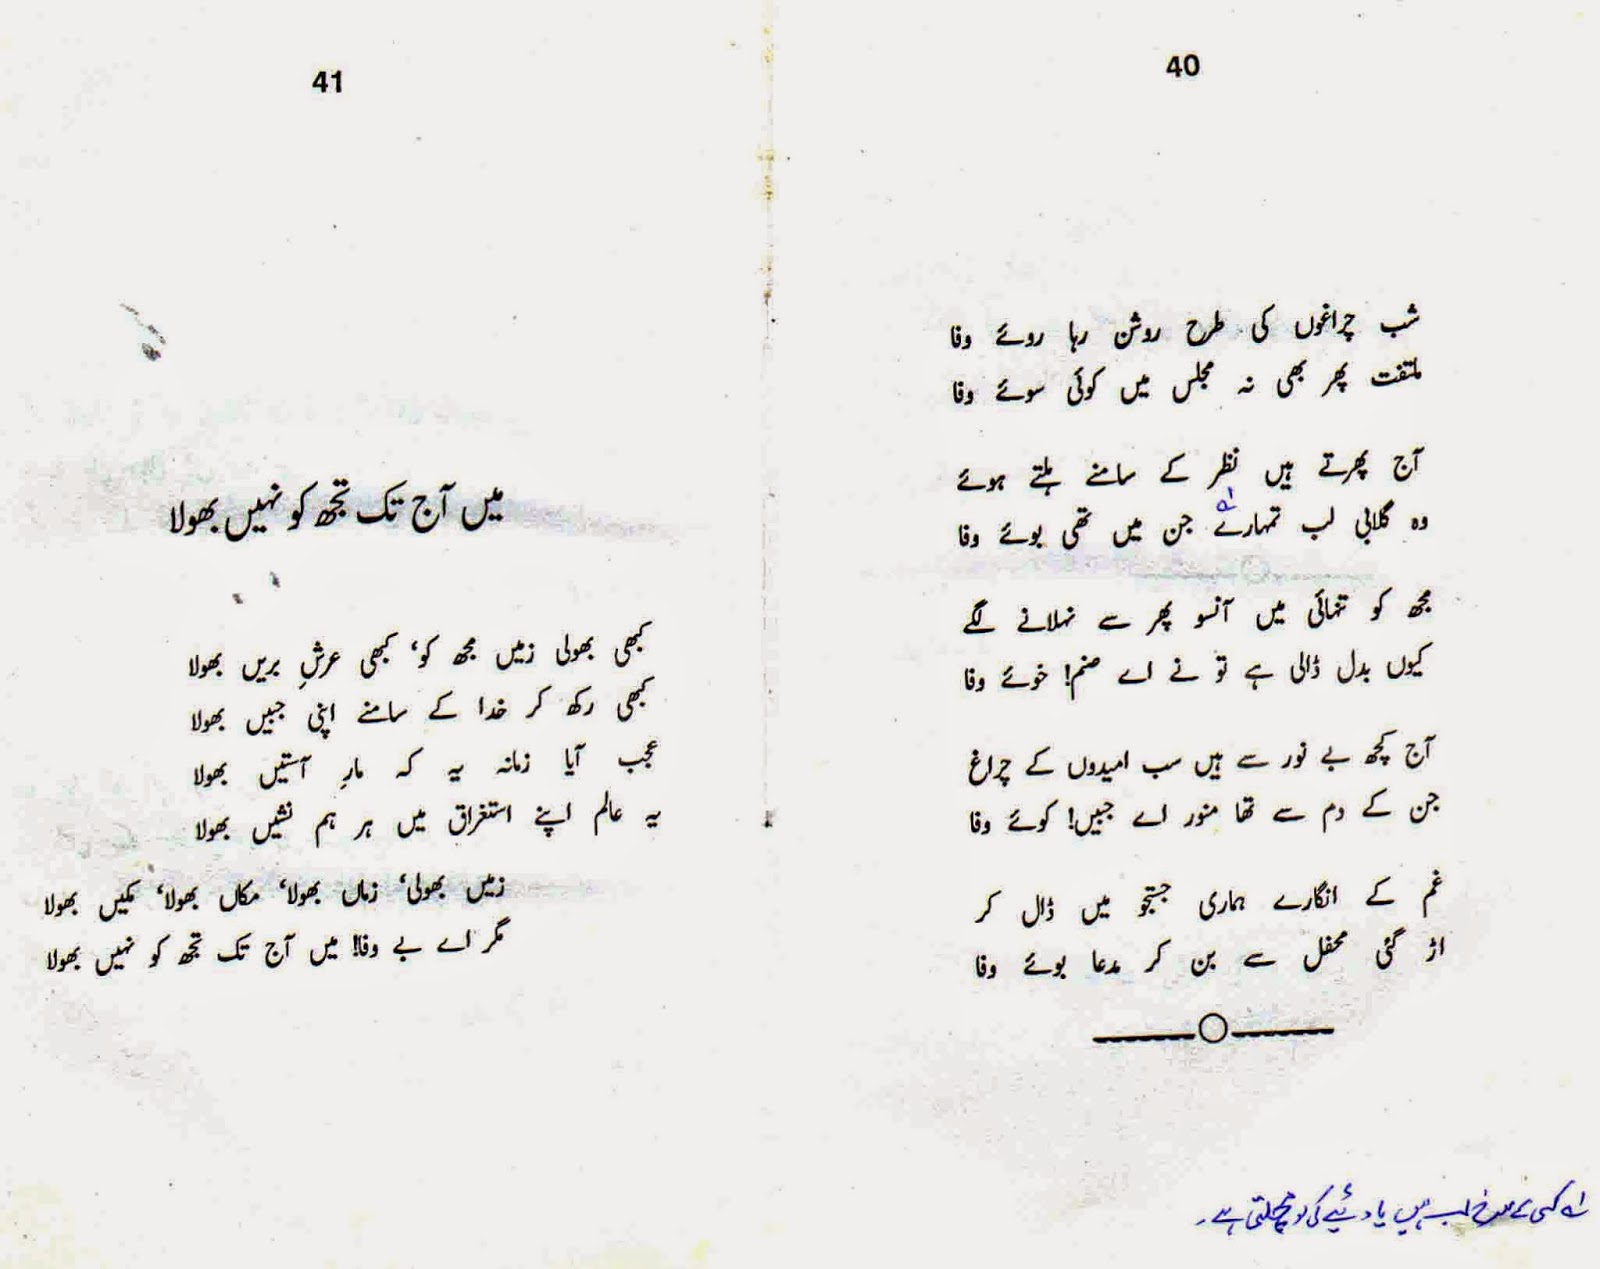 40
شب چراغوں کی طرح روشن رہا روئے وفا
ملتفت پھر بھی نہ مجلس میں کوئی سوئے وفا
آج پھرتے ہیں نظر کے سامنے ہلتے ہوئے
وہ گلابی لب تمہارے جن میں تھی بوئے وفا
مجھ کو تنہائی میں آنسو پھر سے نہلانے لگے
کیوں بدل ڈالی ہے تو نے اے صنم! خوئے وفا
آج کچھ بے نور سے ہیں سب امیدوں کے چراغ
جن کے دم سے تھا منور اے جبیں! کوئے وفا
غم کے انگارے ہماری جستجو میں ڈال کر
اڑ گئی محفل سے بن کر مدعا بوئے وفا
کسی کے سرخ لب ہیں یا دئیے کی لو مچلتی ہے۔
41
میں آج تک تجھ کو نہیں بھولا
کبھی بھولی زمیں مجھ کو، کبھی عرشِ بریں بھولا
کبھی رکھ کر خدا کے سامنے اپنی جبیں بھولا
عجب آیا زمانہ یہ کہ مارِ آستیں بھولا
یہ عالم اپنے استغراق میں ہر ہم نشیں بھولا
زمیں بھولی، زماں بھولا، مکاں بھولا، مکیں بھولا
مگر اے بے وفا! میں آج تک تجھ کو نہیں بھولا